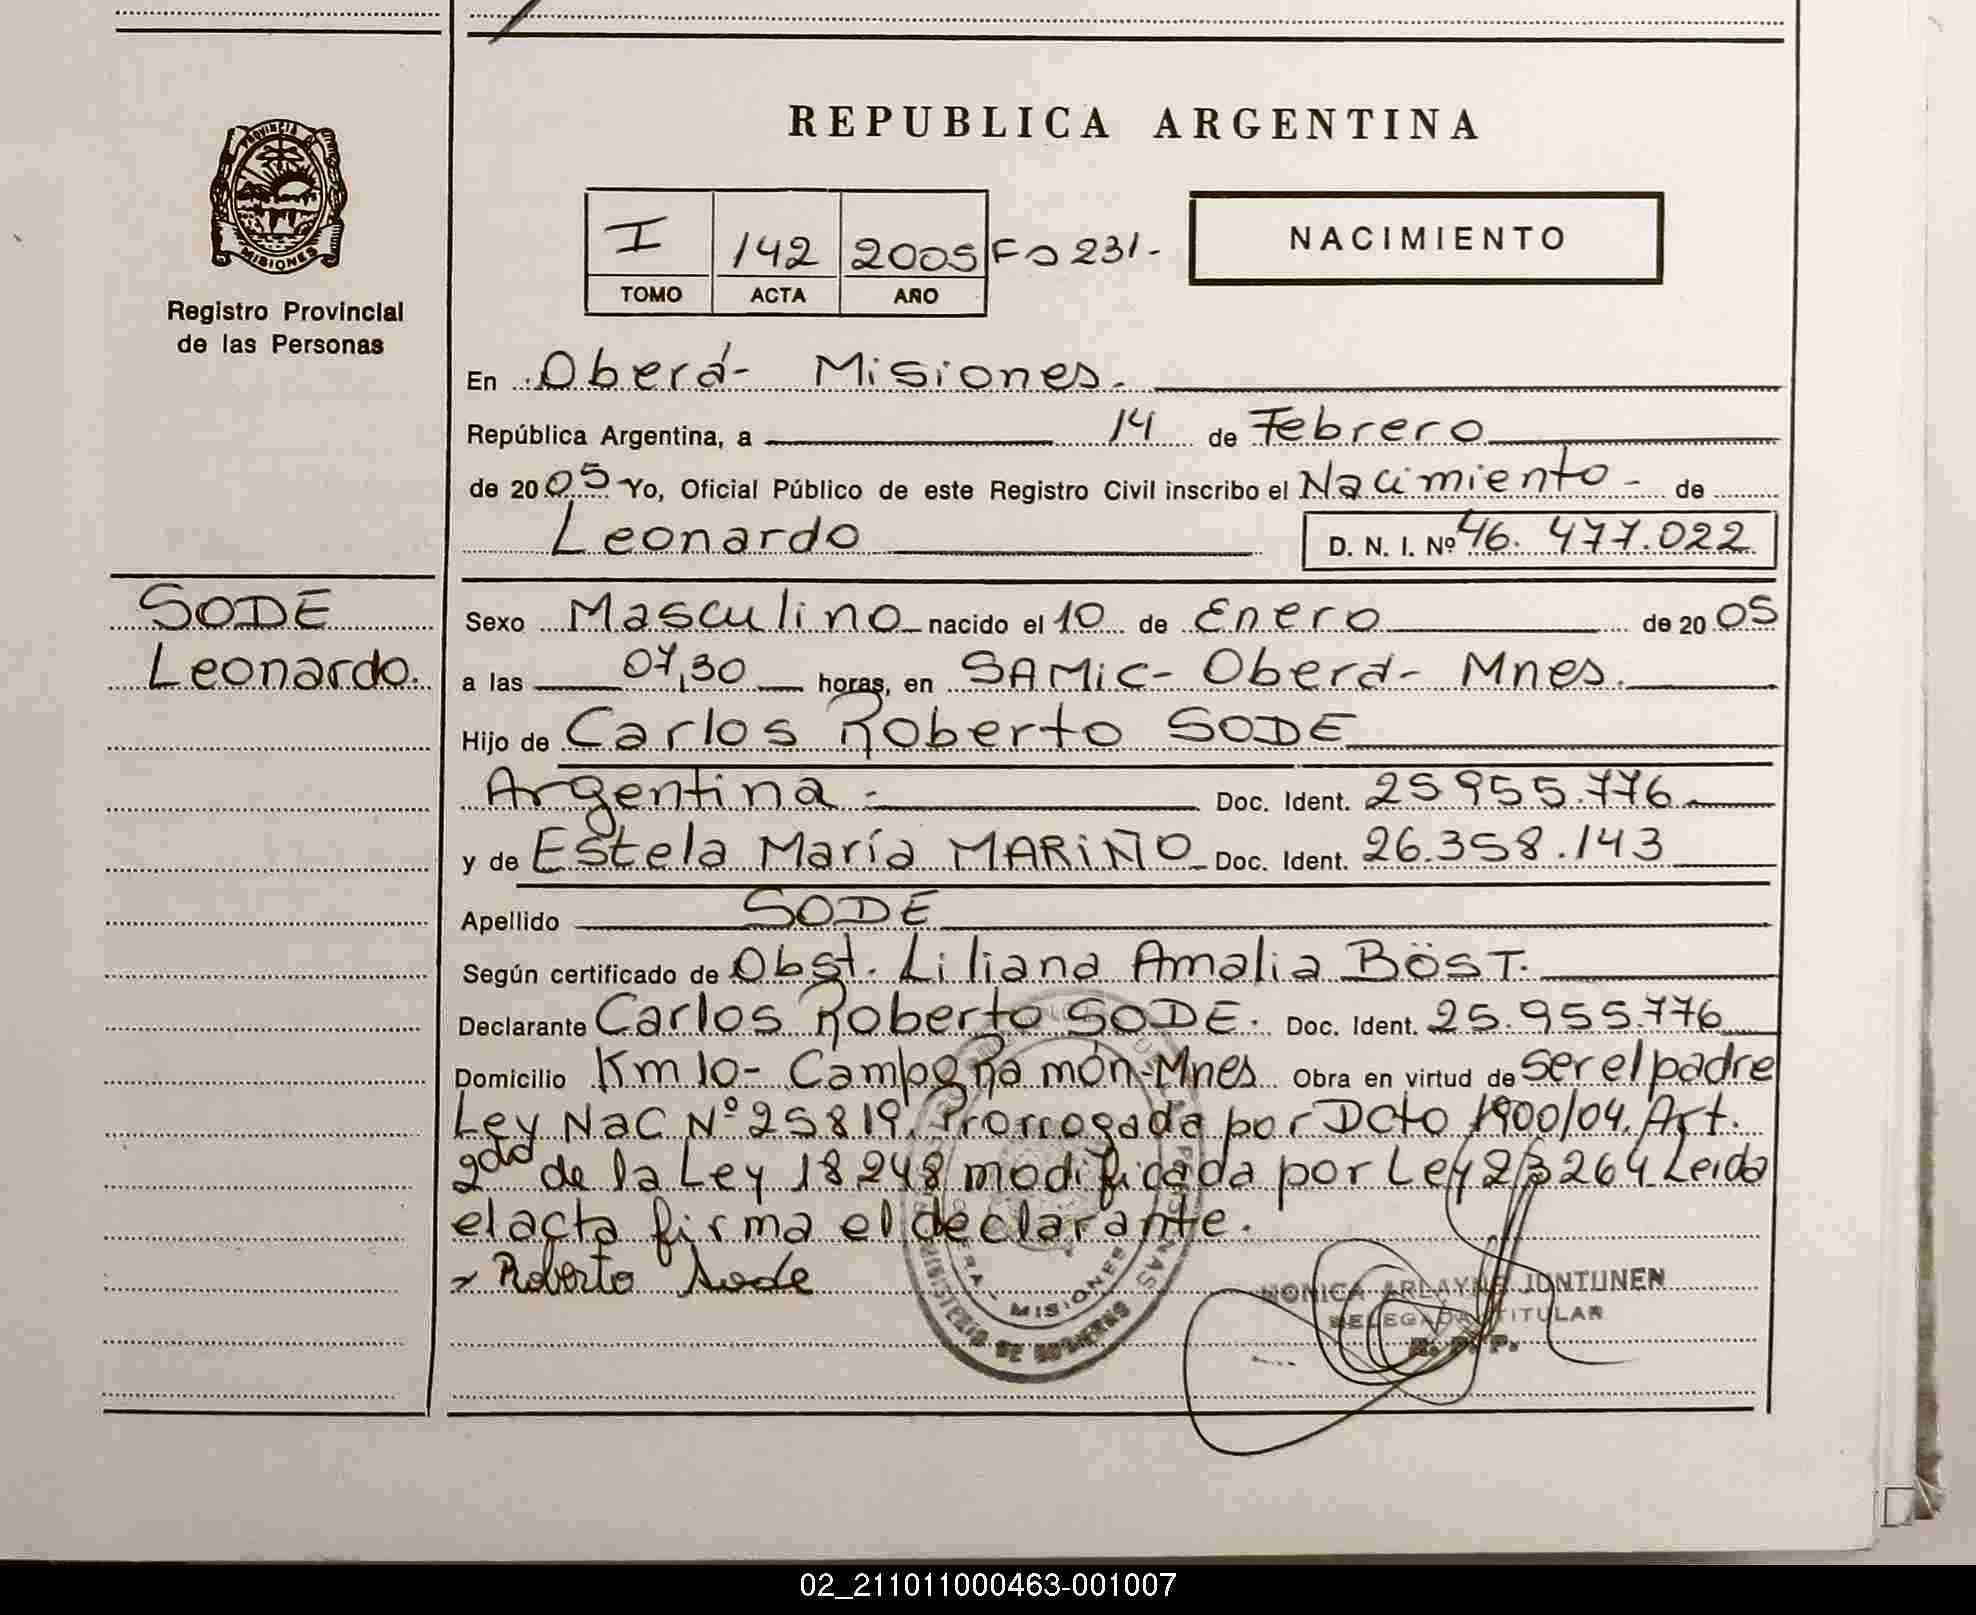 REPUBLICA ARGENTINA
PROVINCIA
MISIONES
Registro Provincial
de las Personas
I 142 2005 Fo 231-
TOMO ACTA AÑO
NACIMIENTO
En Oberá- Misiones.
República Argentina, a 14 de Febrero
de 2005 Yo, Oficial Público de este Registro Civil inscribo el Nacimiento - de
Leonardo D. N. I. Nº 46. 477.022
SODE
Leonardo.
Sexo Masculino nacido el 10 de Enero de 2005
a las 07,30 horas, en SAMiC- Oberá- Mnes.
Hijo de Carlos Roberto SODE
Argentina.- Doc. Ident. 25955.776
y de Estela María MARiÑO Doc. Ident. 26.358.143
Apellido SODE
Según certificado de Obst. Liliana Amalia BÖST.
Declarante Carlos Roberto SODE. Doc. Ident. 25.955.776
Domicilio Km 10- Campo Ramón-Mnes Obra en virtud de ser el padre
Ley NaC Nº 25819. Prorrogada por Dcto 1900/04. Art.
2do de la Ley 18248 modificada por Ley 23264 Leida
el acta firma el declarante.
Roberto Sode
MISIONES
MINISTERIO DE GOBIERNO
MONICA ARLAYNE JONTIINEN
DELEGADA TITULAR
R. P. P.
02_211011000463-001007